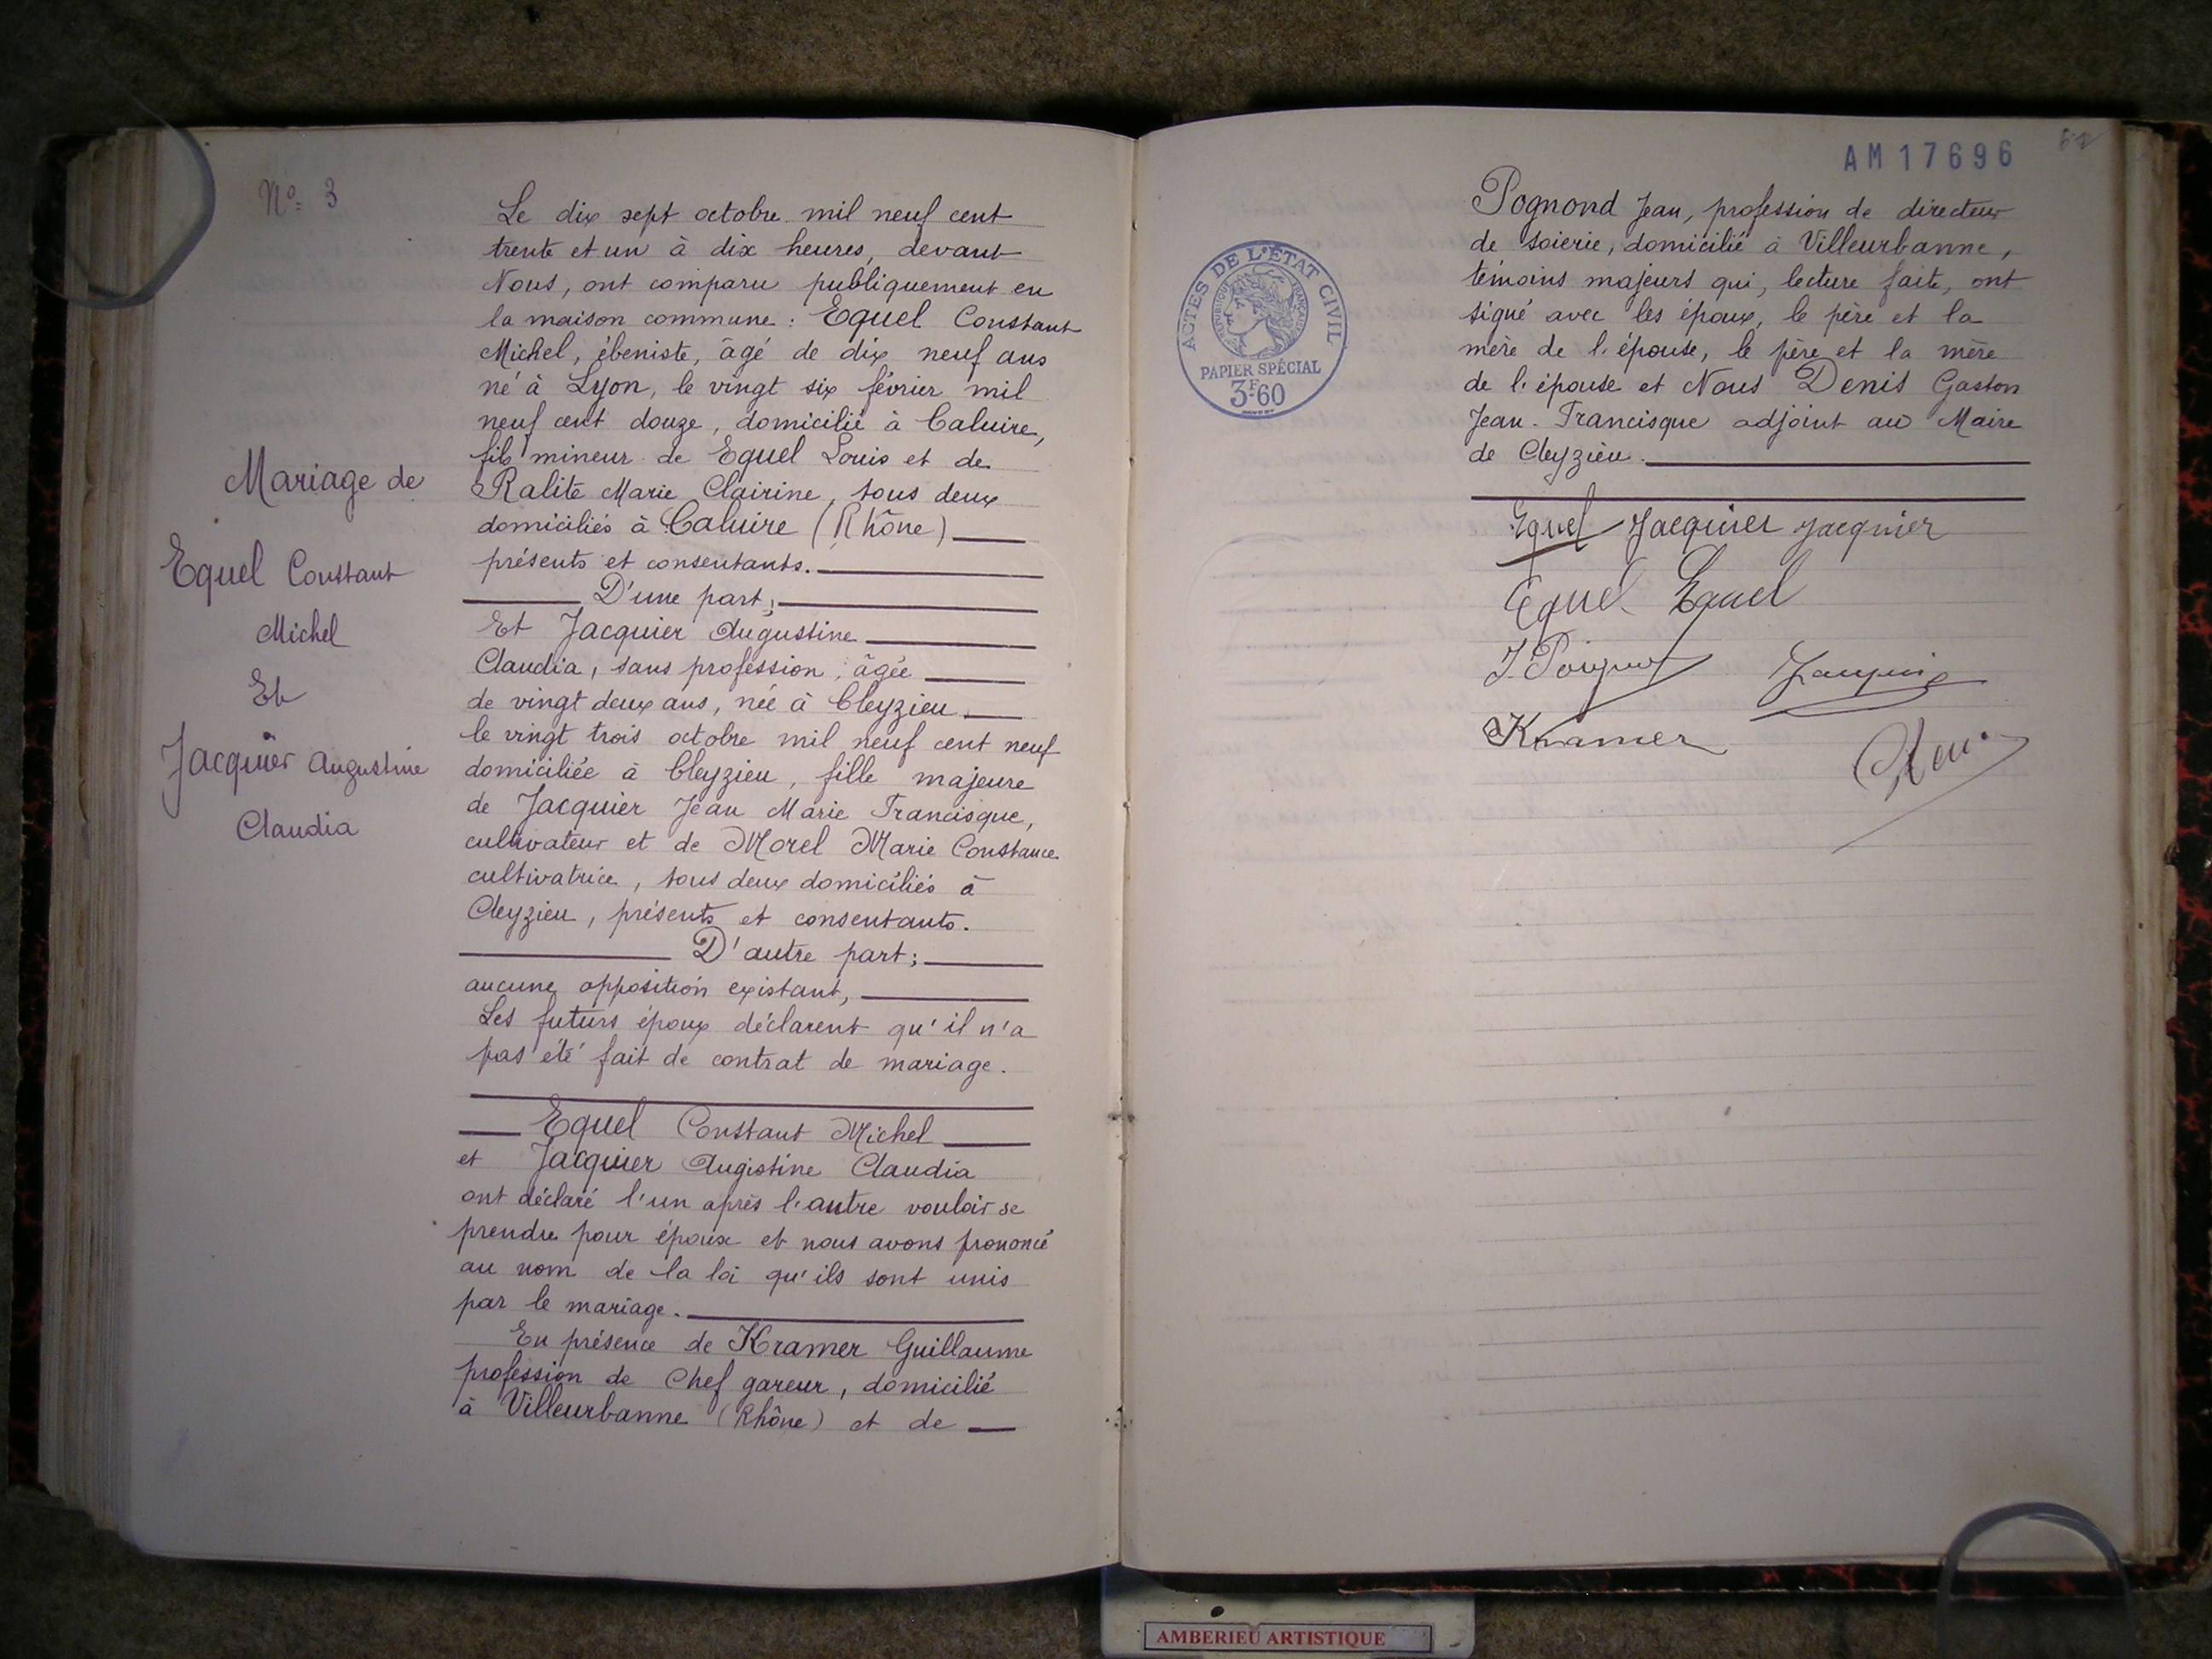 Nº 3
Mariage de
Equel Constant
Michel
Et
Jacquier Augustine
Claudia
Le dix sept octobre mil neuf cent
trente et un à dix heures, devant
Nous, ont comparu publiquement en
la maison commune : Equel Constant
Michel, ébeniste, âgé de dix neuf ans
né à Lyon, le vingt six février mil
neuf cent douze, domicilié à Caluire,
fils mineur de Equel Louis et de
Ralite Marie Clairine, tous deux
domiciliés à Caluire (Rhône)
présents et consentants.
D'une part;
Et Jacquier Augustine
Claudia, sans profession, âgée
de vingt deux ans, née à Cleyzieu
le vingt trois octobre mil neuf cent neuf
domiciliée à Cleyzieu, fille majeure
de Jacquier Jean Marie Francisque,
cultivateur et de Morel Marie Constance
cultivatrice, tous deux domiciliés à
Cleyzieu, présents et consentants.
D'autre part;
aucune opposition existant,
Les futurs époux déclarent qu'il n'a
pas été fait de contrat de mariage.
Equel Constant Michel
et Jacquier Augistine Claudia
ont déclaré l'un après l'autre vouloir se
prendre pour époux et nous avons prononcé
au nom de la loi qu'ils sont unis
par le mariage.
En présence de Kramer Guillaume
profession de Chef gareur, domicilié
à Villeurbanne (Rhône) et de
AM 17696
ACTES DE L'ÉTAT CIVIL
RÉPUBLIQUE FRANÇAISE
PAPIER SPÉCIAL
3F60
Pognond Jean, profession de directeur
de soierie, domicilié à Villeurbanne,
témoins majeurs qui, lecture faite, ont
signé avec les époux, le père et la
mère de l'épouse, le père et la mère
de l'épouse et Nous Denis Gaston
Jean-Francisque adjoint au Maire
de Cleyzieu.
Equel Jacquier Jacquier
Equel Equel
Kramer
AMBERIEU ARTISTIQUE